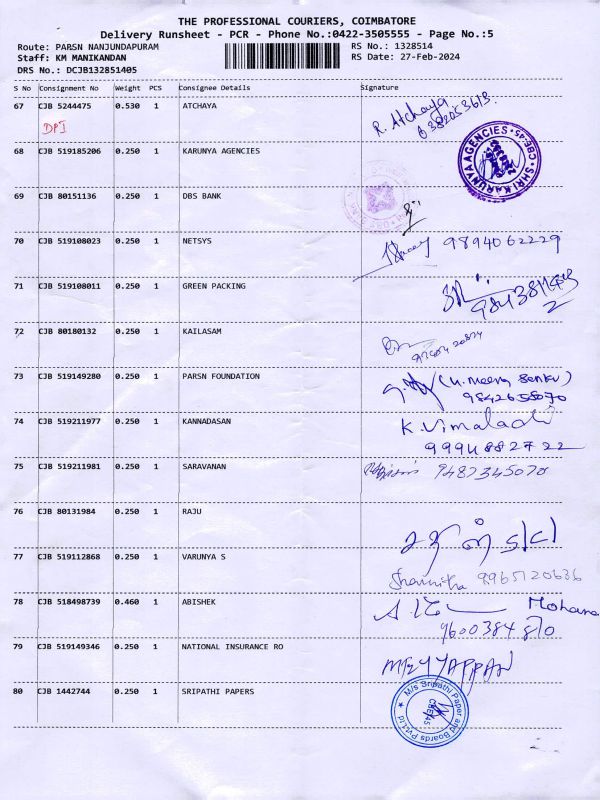 THE PROFESSIONAL COURIERS, COIMBATORE
Delivery Runsheet - PCR - Phone No.:0422-3505555 - Page No.:5
Route: PARSN NANJUNDAPURAM RS No.: 1328514
Staff: KM MANIKANDAN RS Date: 27-Feb-2024
DRS No.: DCJB132851405
S No Consignment No Weight PCS Consignee Details Signature
67 CJB 5244475 0.530 1 ATCHAYA R. Atchaya
DPI
68 CJB 519185206 0.250 1 KARUNYA AGENCIES
SHRI KARUNYA AGENCIES CBE-45
69 CJB 80151136 0.250 1 DBS BANK
70 CJB 519108023 0.250 1 NETSYS 9894062229
71 CJB 519108011 0.250 1 GREEN PACKING
72 CJB 80180132 0.250 1 KAILASAM
73 CJB 519149280 0.250 1 PARSN FOUNDATION
9842655070
74 CJB 519211977 0.250 1 KANNADASAN K. Vimaladi
9994882722
75 CJB 519211981 0.250 1 SARAVANAN 9487345070
76 CJB 80131984 0.250 1 RAJU
77 CJB 519112868 0.250 1 VARUNYA S
9965120636
78 CJB 518498739 0.460 1 ABISHEK Mohana
9600384810
79 CJB 519149346 0.250 1 NATIONAL INSURANCE RO MEYYAPPAN
80 CJB 1442744 0.250 1 SRIPATHI PAPERS
M/s Sripathi Paper and Boards Pvt.Ltd
CBE-45